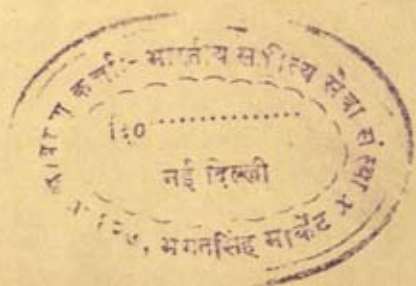 कर्त्ता:- भारतीय साहित्य सेवा संस्था
दि०..............
नई दिल्ली
भगतसिंह मार्केट